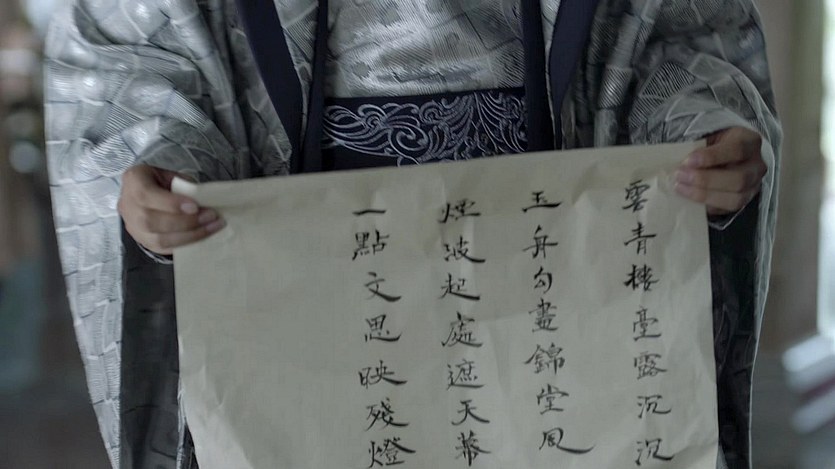 雲青樓臺露沉沉
玉舟勾畫錦堂風
煙波起處遮天幕
一點文思映殘燈